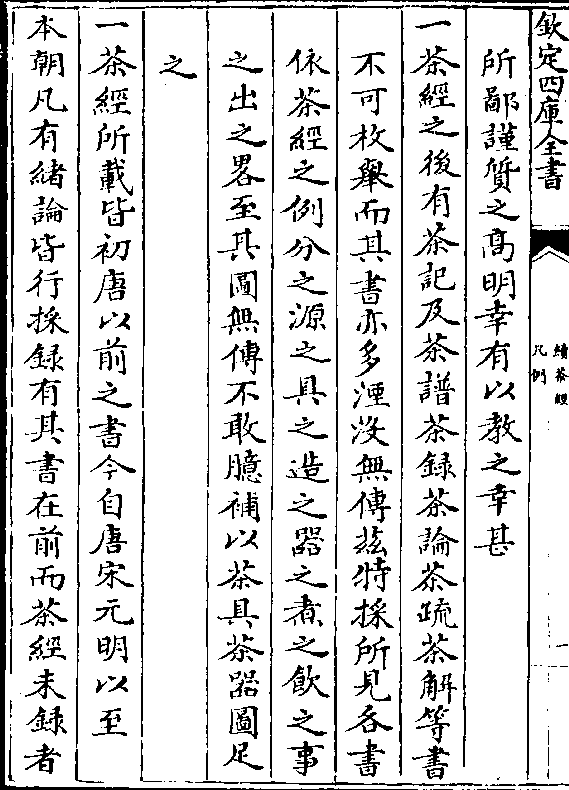 欽定四庫全書
續茶經
凡例
所鄙謹質之高明幸有以教之幸甚
一茶經之後有茶記及茶譜茶録茶論茶疏茶解等書
不可枚舉而其書亦多湮没無傳兹特採所見各書
依茶經之例分之源之具之造之器之煮之飲之事
之出之畧至其圖無傳不敢臆補以茶具茶器圖足
之
一茶經所載皆初唐以前之書今自唐宋元明以至
本朝凡有緒論皆行採録有其書在前而茶經未録者
一